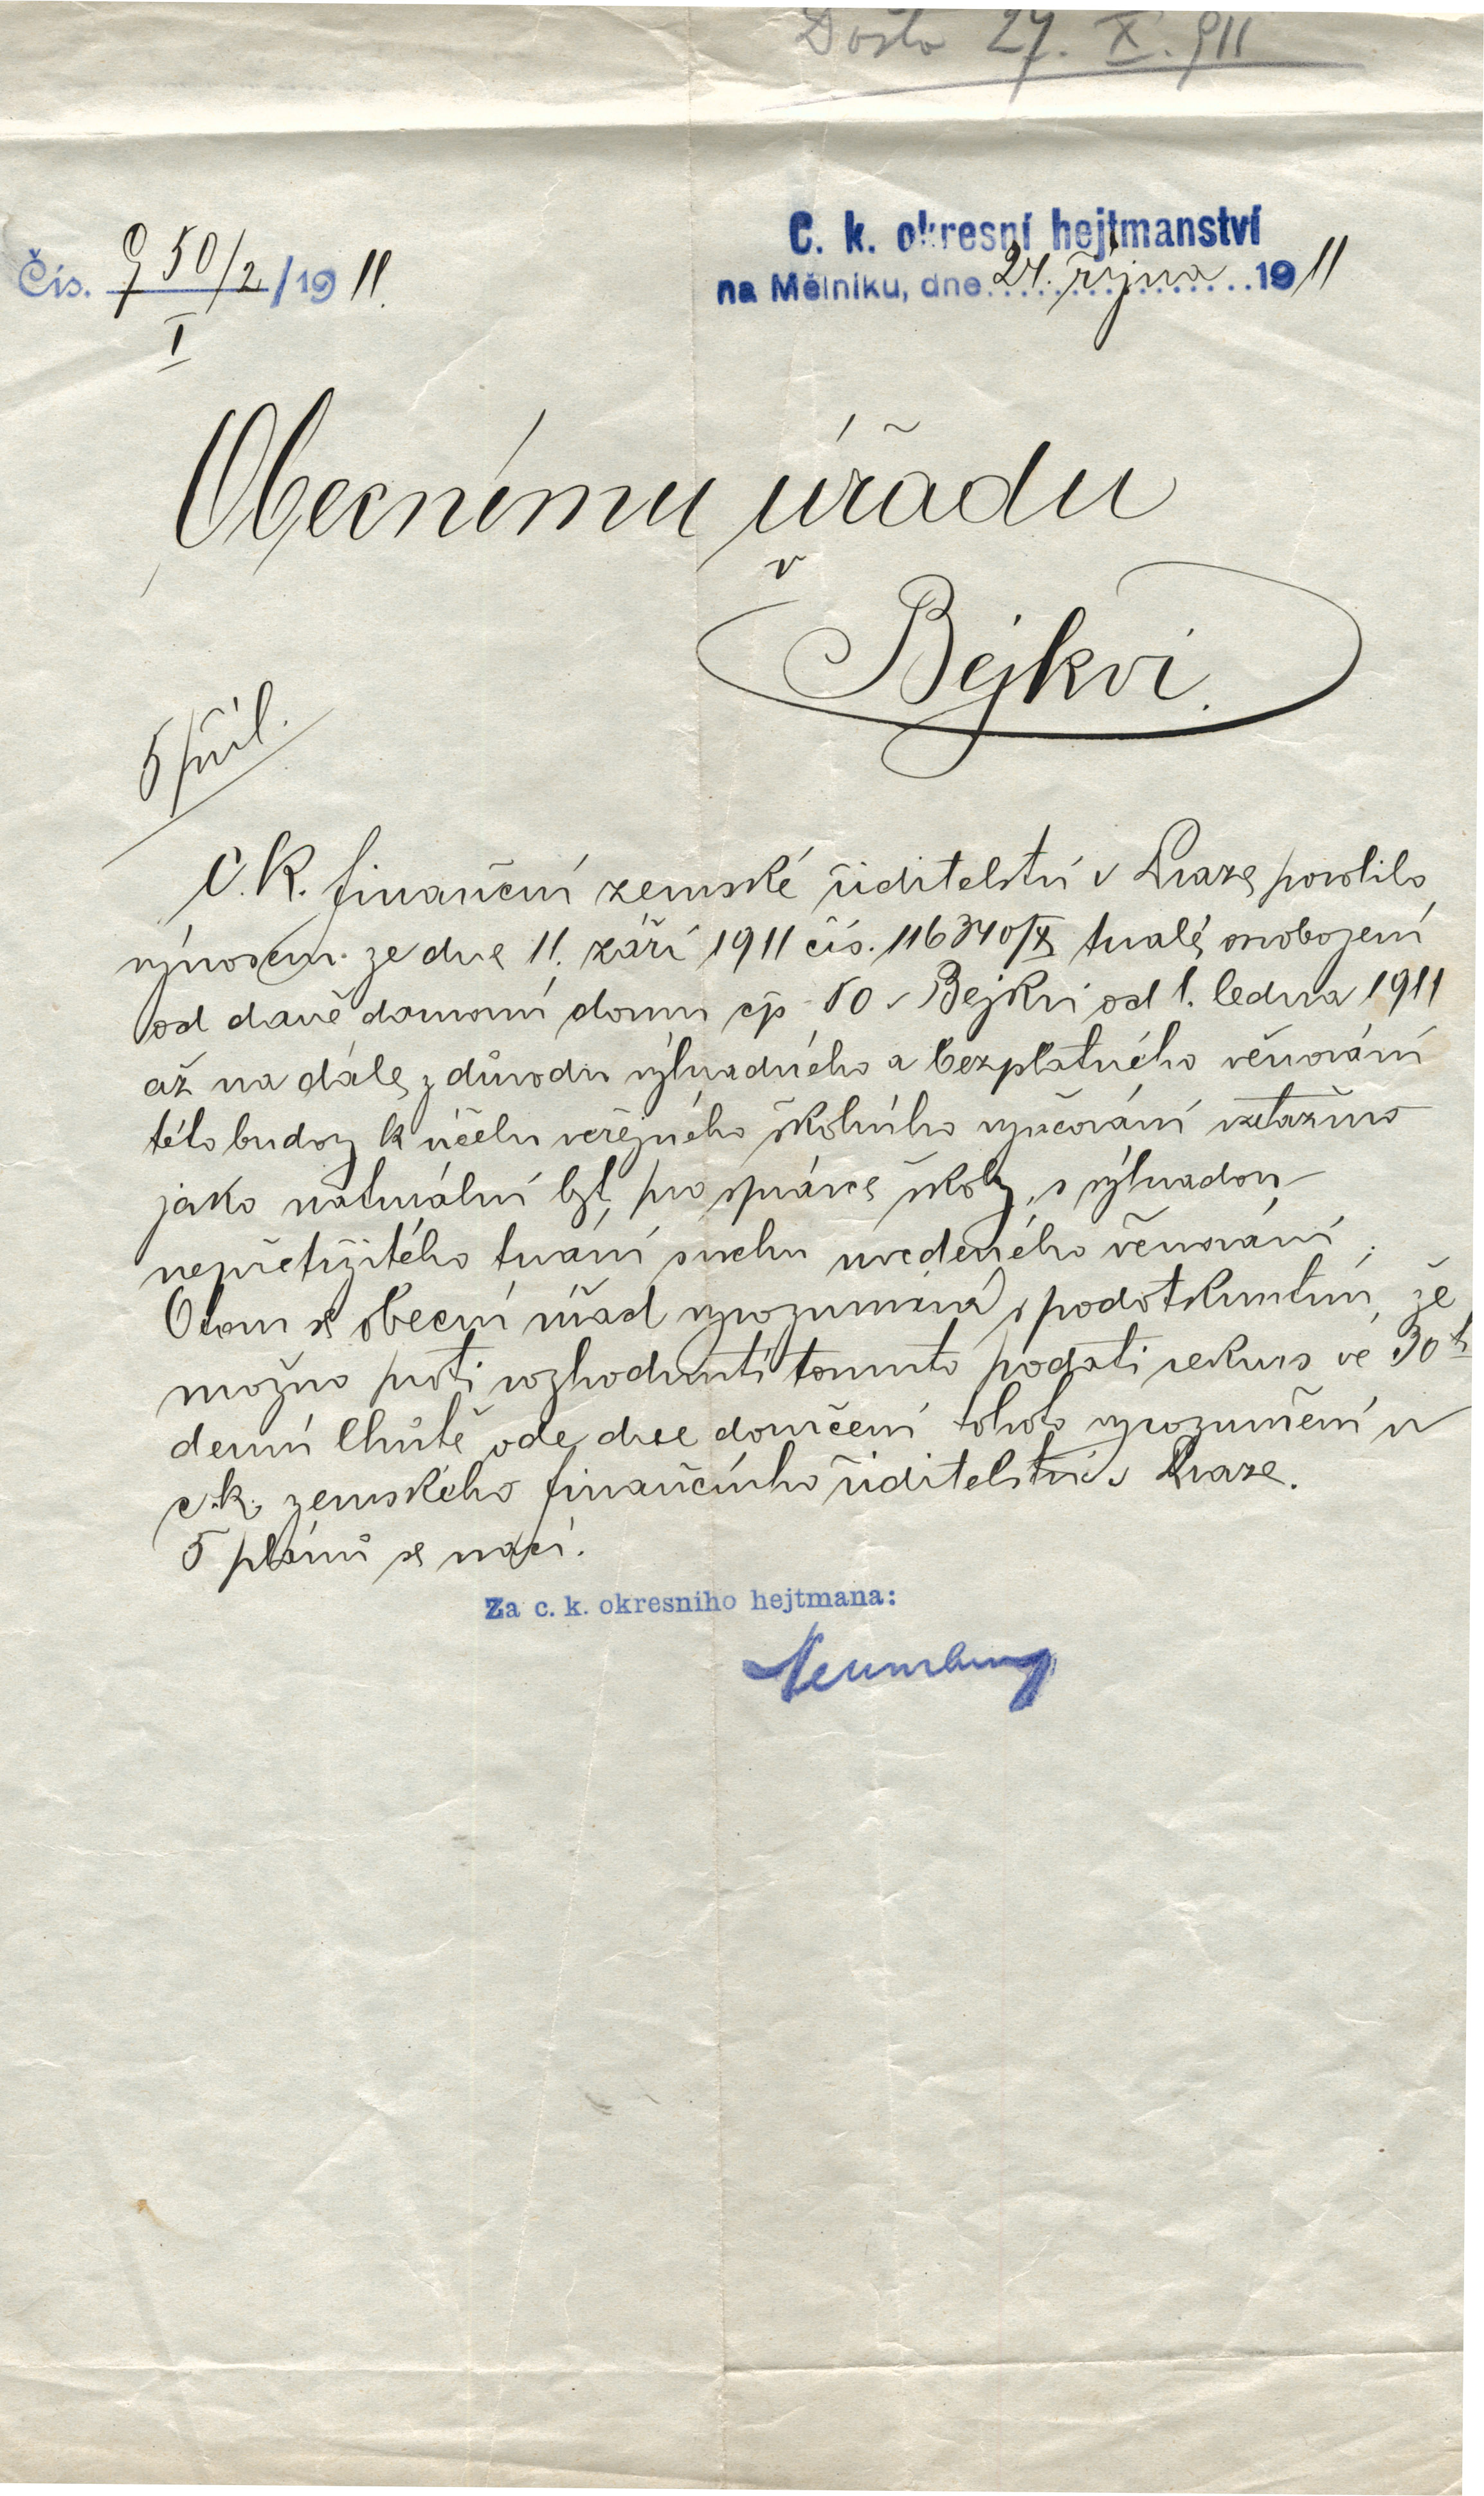 Došlo 27. X. 911
Čís. 950/2 / 19 11.
I
C. k. okresní hejtmanství
na Mělníku, dne 24. října 19 11
Obecnímu úřadu
v
Bejkvi.
5 příl.
C. k. finanční zemské ředitelství v Praze povolilo
výnosem ze dne 11. září 1911 čís. 116340/X trvalé osvobození
od daně domovní domu čp 50 v Bejkvi od 1. ledna 1911
až na dále z důvodu výhradného a bezplatného věnování
této budovy k účelu veřejného školního vyučování vztažmo
jako naturální byt pro správce školy, s výhradou
nepřetržitého trvání svrchu uvedeného věnování.
O tom se obecní úřad vyrozumívá s podotknutím, že
možno proti rozhodnutí tomuto podati rekurs ve 30ti
denní lhůtě ode dne doručení tohoto vyrozumění u
c. k. zemského finančního ředitelství v Praze.
5 plánů se vrací.
Za c. k. okresního hejtmana: